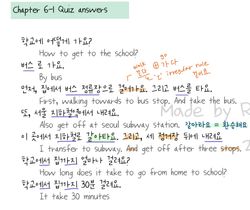 Chapter 6-1 Quiz answers
학교에 어떻게 가요?
How to get to the school?
버스로 가요.
By bus
먼저, 집에서 버스 정류장으로 걸어가요. 그리고 버스를 타요.
First, walking towards to bus stop. And take the bus.
또, 서울 지하철역에서 내려요.
Also get off at seoul subway station. 갈아타요 = 환승해요
이 곳에서 지하철로 갈아타요. 그리고, 세 정거장 뒤에 내려요
I transfer to subway. And get off after three stops.
학교에서 집까지 얼마나 걸려요?
How long does it take to go from home to school?
학교에서 집까지 30분 걸려요.
It take 30 minutes
walk
걷다
가다
irregular rule
걸어
Made by R